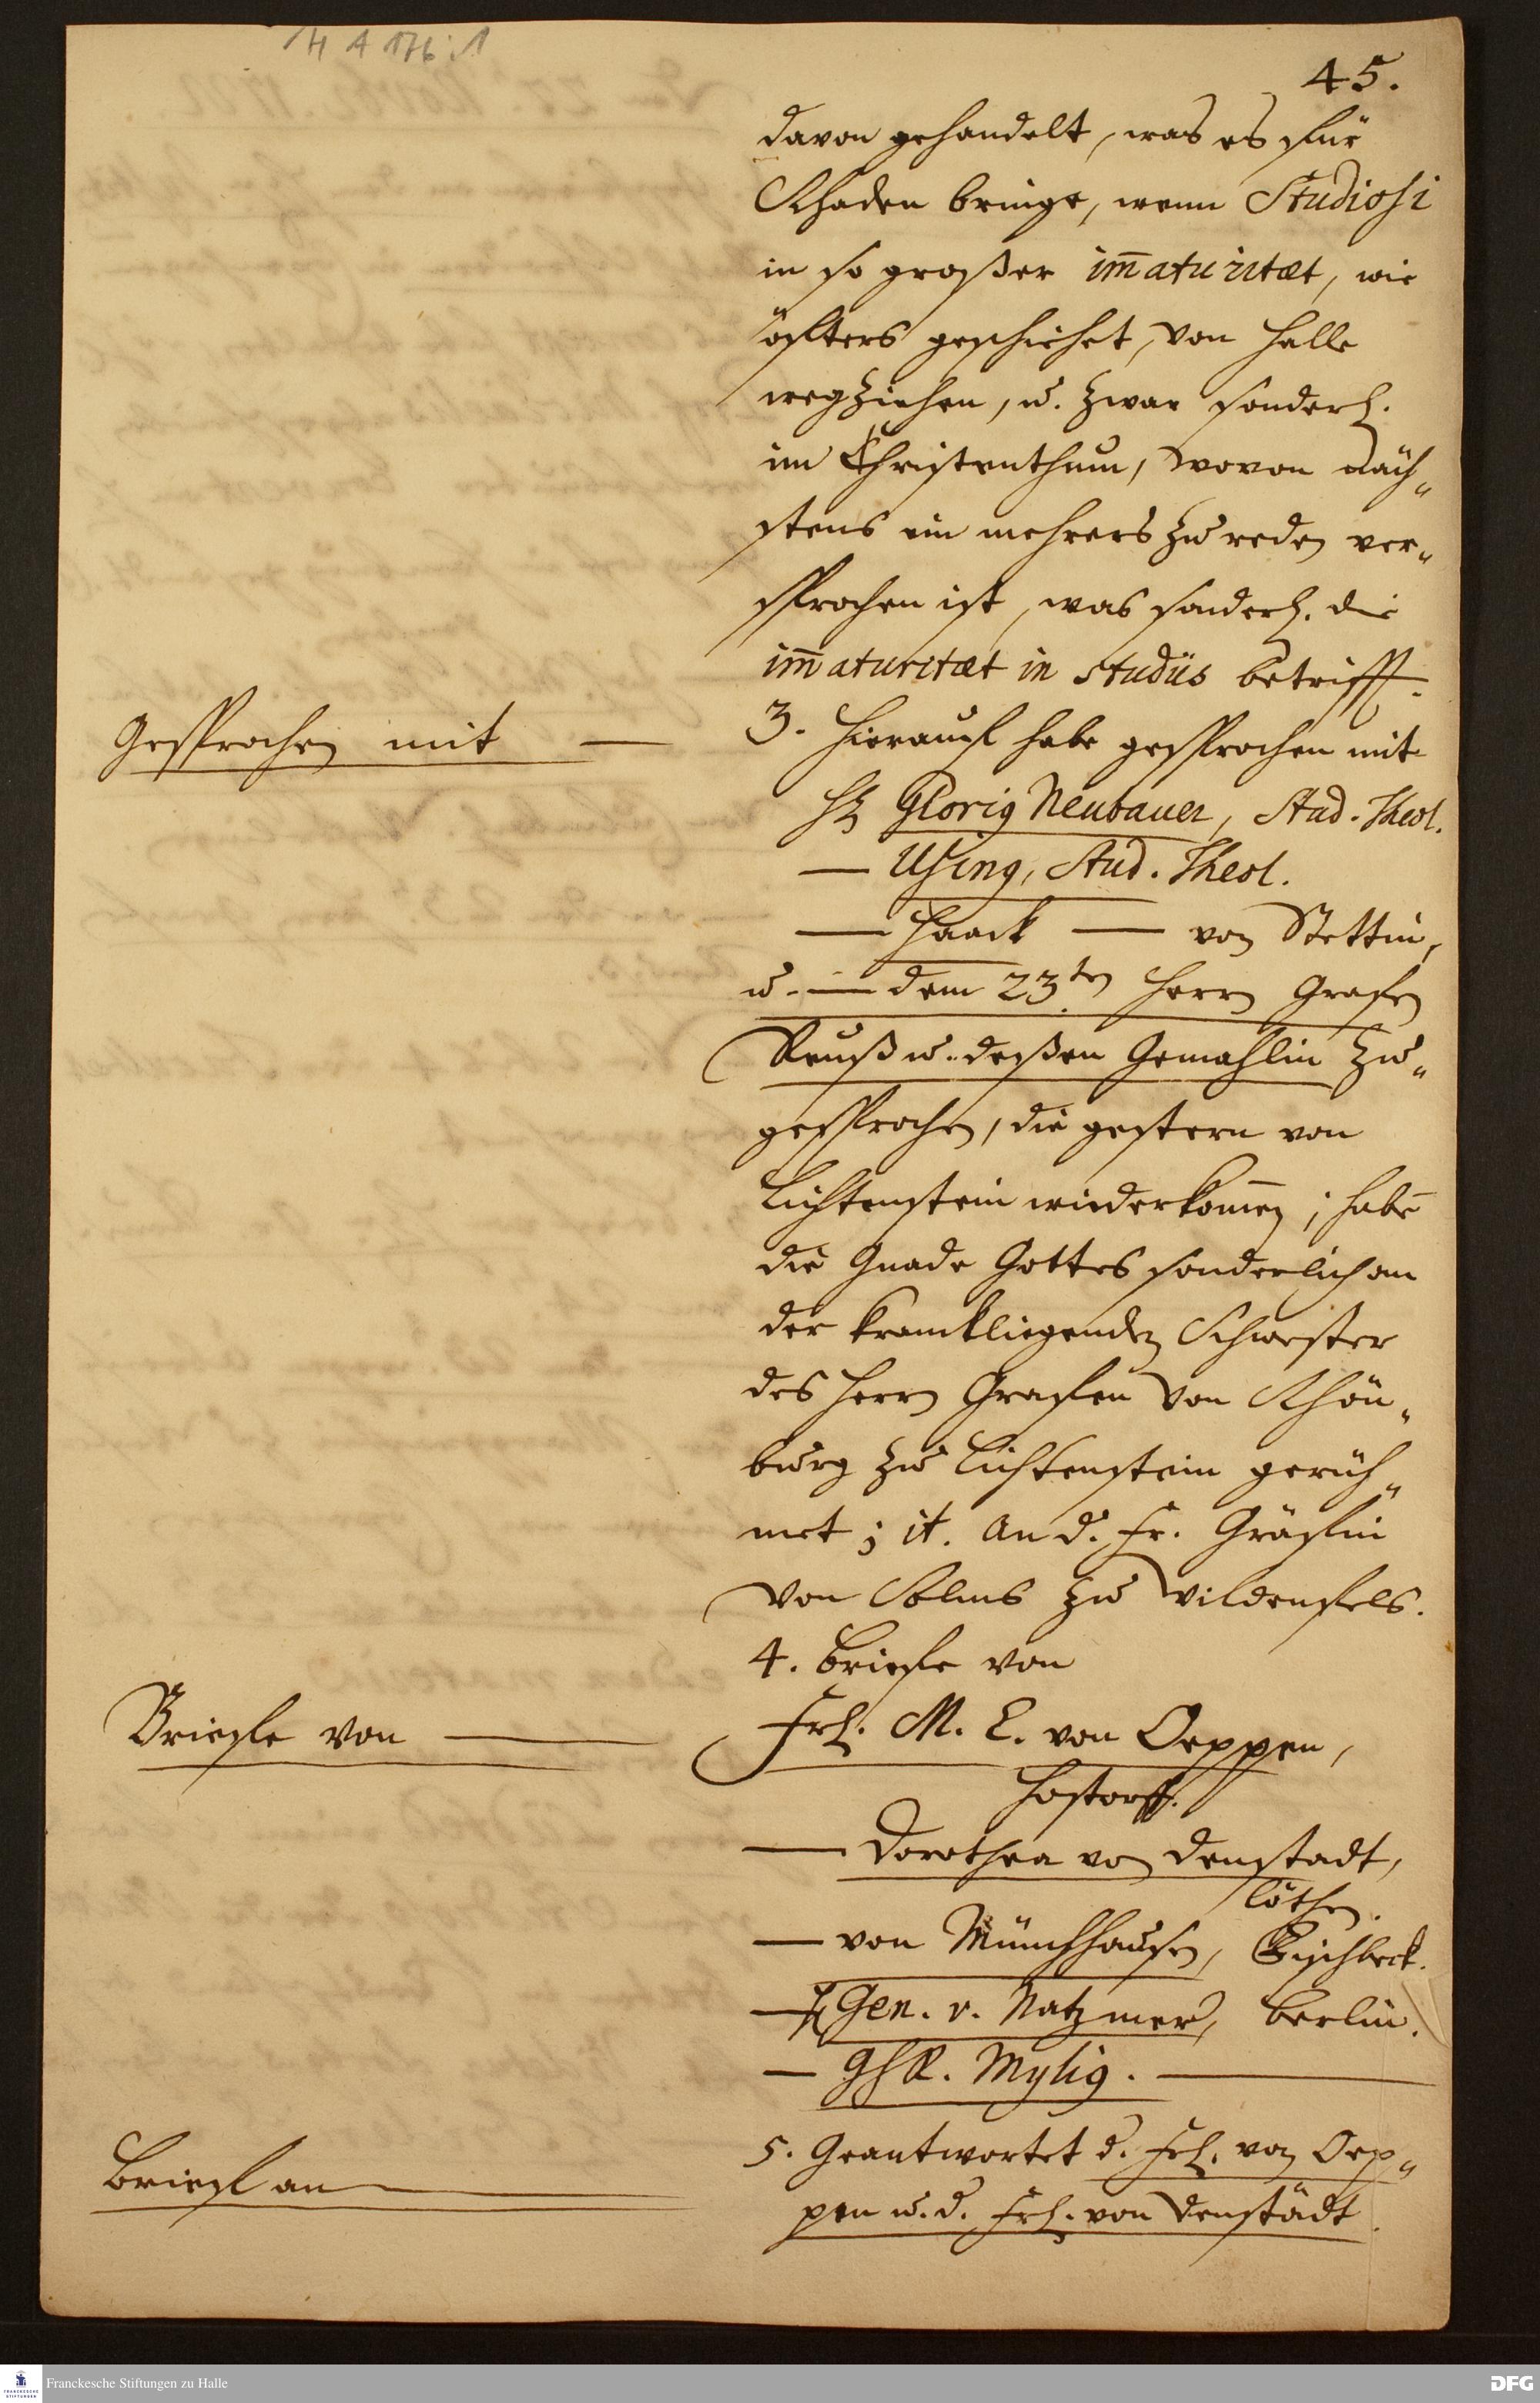 H A 176:1
45.
davon gehandelt, was es für
Schaden bringe, wenn Studiosi
in so großer im̄aturitæt, wie
öfters geschiehet, von Halle
wegziehen, u. zwar sonderl.
im Christenthum, wovon näch„
stens ein mehrers zu reden ver„
sprochen ist, was sonderl. die
im̄aturitæt in studiis betrifft.
Gesprochen mit —
3. Hierauf habe gesprochen mit
H. Glorig Neubauer, Stud. Theol.
— Using, Stud. Theol.
— Haack — von Stettin,
u. — dem 23ten Herrn Grafen
Reuß u. deßen Gemahlin zu„
gesprochen, die gestern von
Lichtenstein wiederkom̄en; habe
die Gnade Gottes sonderlich an
der kranckliegenden Schwester
des Herrn Grafen von Schön„
burg zu Lichtenstein gerüh„
met; it. an d. Fr. Gräfin
von Solms zu Wildenfels.
4. Briefe von
Briefe von —
Frl. M. E. von Oeppen,
Hostorff.
— Dorothea von Denstadt,
Cöthen.
— von Münchhausen, Fischbeck.
— H. Gen. v. Natzmer, Berlin.
— GhR. Mylig. —
Brief an —
5. Geantwortet d. Frl. von Oep„
pen u. d. Frl. von Denstädt.
FRANCKESCHE STIFTUNGEN
Franckesche Stiftungen zu Halle
DFG